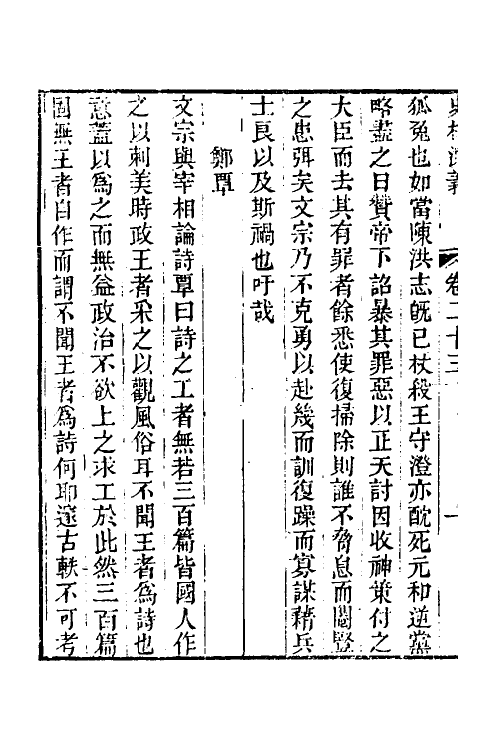 卷二十三
一
狐兔也如當陳洪志旣已杖殺王守澄亦酖死元和逆黨
略盡之日贊帝下詔暴其罪惡以正天討因收神策付之
大臣而去其有罪者餘悉使復掃除則誰不脅息而閹豎
之患弭矣文宗乃不克勇以赴幾而訓復躁而寡謀藉兵
士良以及斯禍也吁哉
鄭覃
文宗與宰相論詩覃曰詩之工者無若三百篇皆國人作
之以刺美時政王者采之以觀風俗耳不聞王者爲詩也
意蓋以爲之而無益政治不欲上之求工於此然三百篇
固無王者自作而謂不聞王者爲詩何耶邃古軼不可考